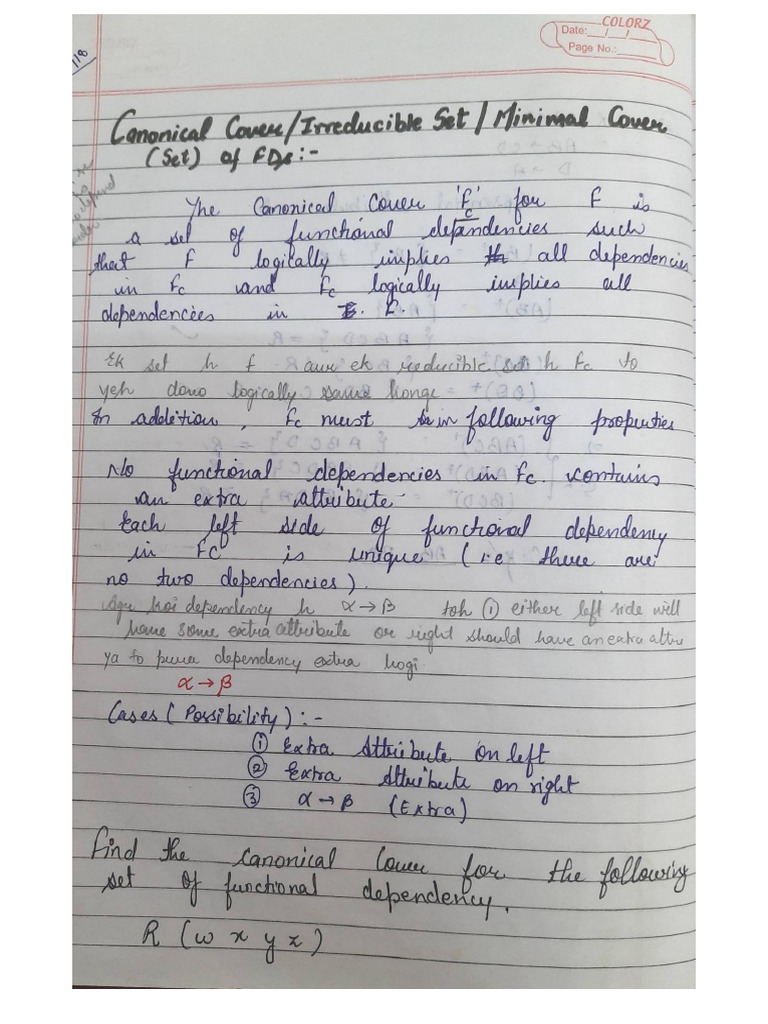 COLORZ
Date:__/__/__
Page No.:
1/8
Canonical Cover/Irreducible Set/Minimal Cover
(Set) of FDs:-
The Canonical Cover 'Fc' for F is
a set of functional dependencies such
that F logically implies all dependencies
in Fc and Fc logically implies all
dependencies in F.
Ek set h f aur ek reducible set h Fc to
yeh dono logically same honge
In addition, Fc must in following properties
No functional dependencies in Fc contains
an extra attribute
Each left side of functional dependency
in FC is unique (i.e there are
no two dependencies).
Agr koi dependency h α→β toh ① either left side will
have some extra attribute or right should have an extra attri
ya to pura dependency extra hogi
α→β
Cases (Possibility):-
① Extra Attribute on left
② Extra Attribute on right
③ α→β (Extra)
Find the canonical cover for the following
set of functional dependency.
R (w x y z)